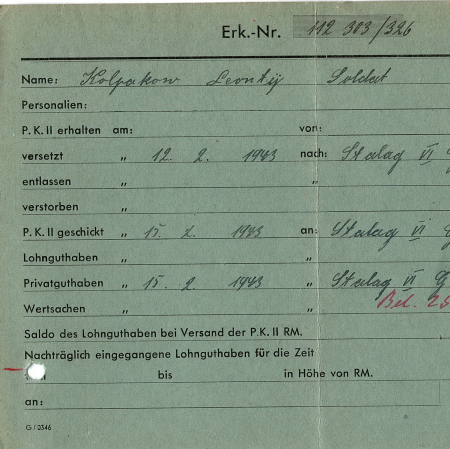 Erk.-Nr. 112 303/326
Name: Kolpakow Leontij Soldat
Personalien:
P. K. II erhalten am: von:
versetzt " 12. 2. 1943 nach: Stalag VI G
entlassen " "
verstorben "
P. K. II geschickt " 15. 2. 1943 an: Stalag VI G
Lohnguthaben " "
Privatguthaben " 15. 2 1943 " Stalag VI G
Wertsachen " " Bel. 25
Saldo des Lohnguthaben bei Versand der P. K. II RM.
Nachträglich eingegangene Lohnguthaben für die Zeit
bis in Höhe von RM.
an:
G/0346